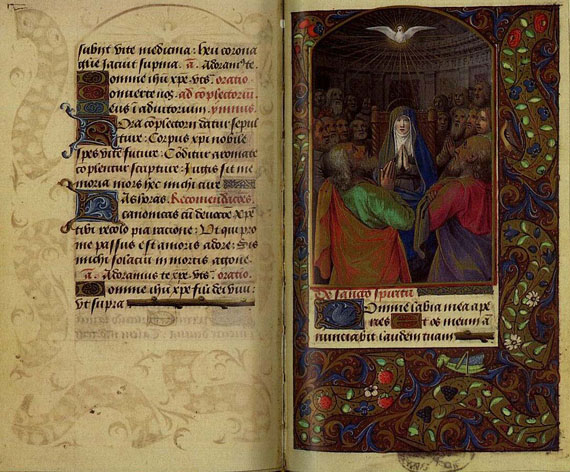 subut vite medicina: heu corona
que iacuit supina. a. Adoram⁹ te
Domine ihu xpe. vts. oratio.
Converte nos. ad cōpletoriū
Deus ī adiutorium. ymnus.
Hora cōpletorii datur sepul
ture: Corpus xpi nobile
spes vite future: Cōditur aromate
cōplentur scripture: Iugis sit me
moria mors hec michi cure
Has horas. Recomēdacōes.
canonicas cū devoce xpe
tibi recolo pia racione: Ut qui pro
me passus est amoris ardore: Sis
michi solaciū in mortis agone
a. Adoramus te xpe. vts. oratio.
Domine ihu xpe fili dei vivi:
vt supra
De sancto spiritu
Domine labia mea ape
ries Et os meum ā
nunciabit laudem tuam